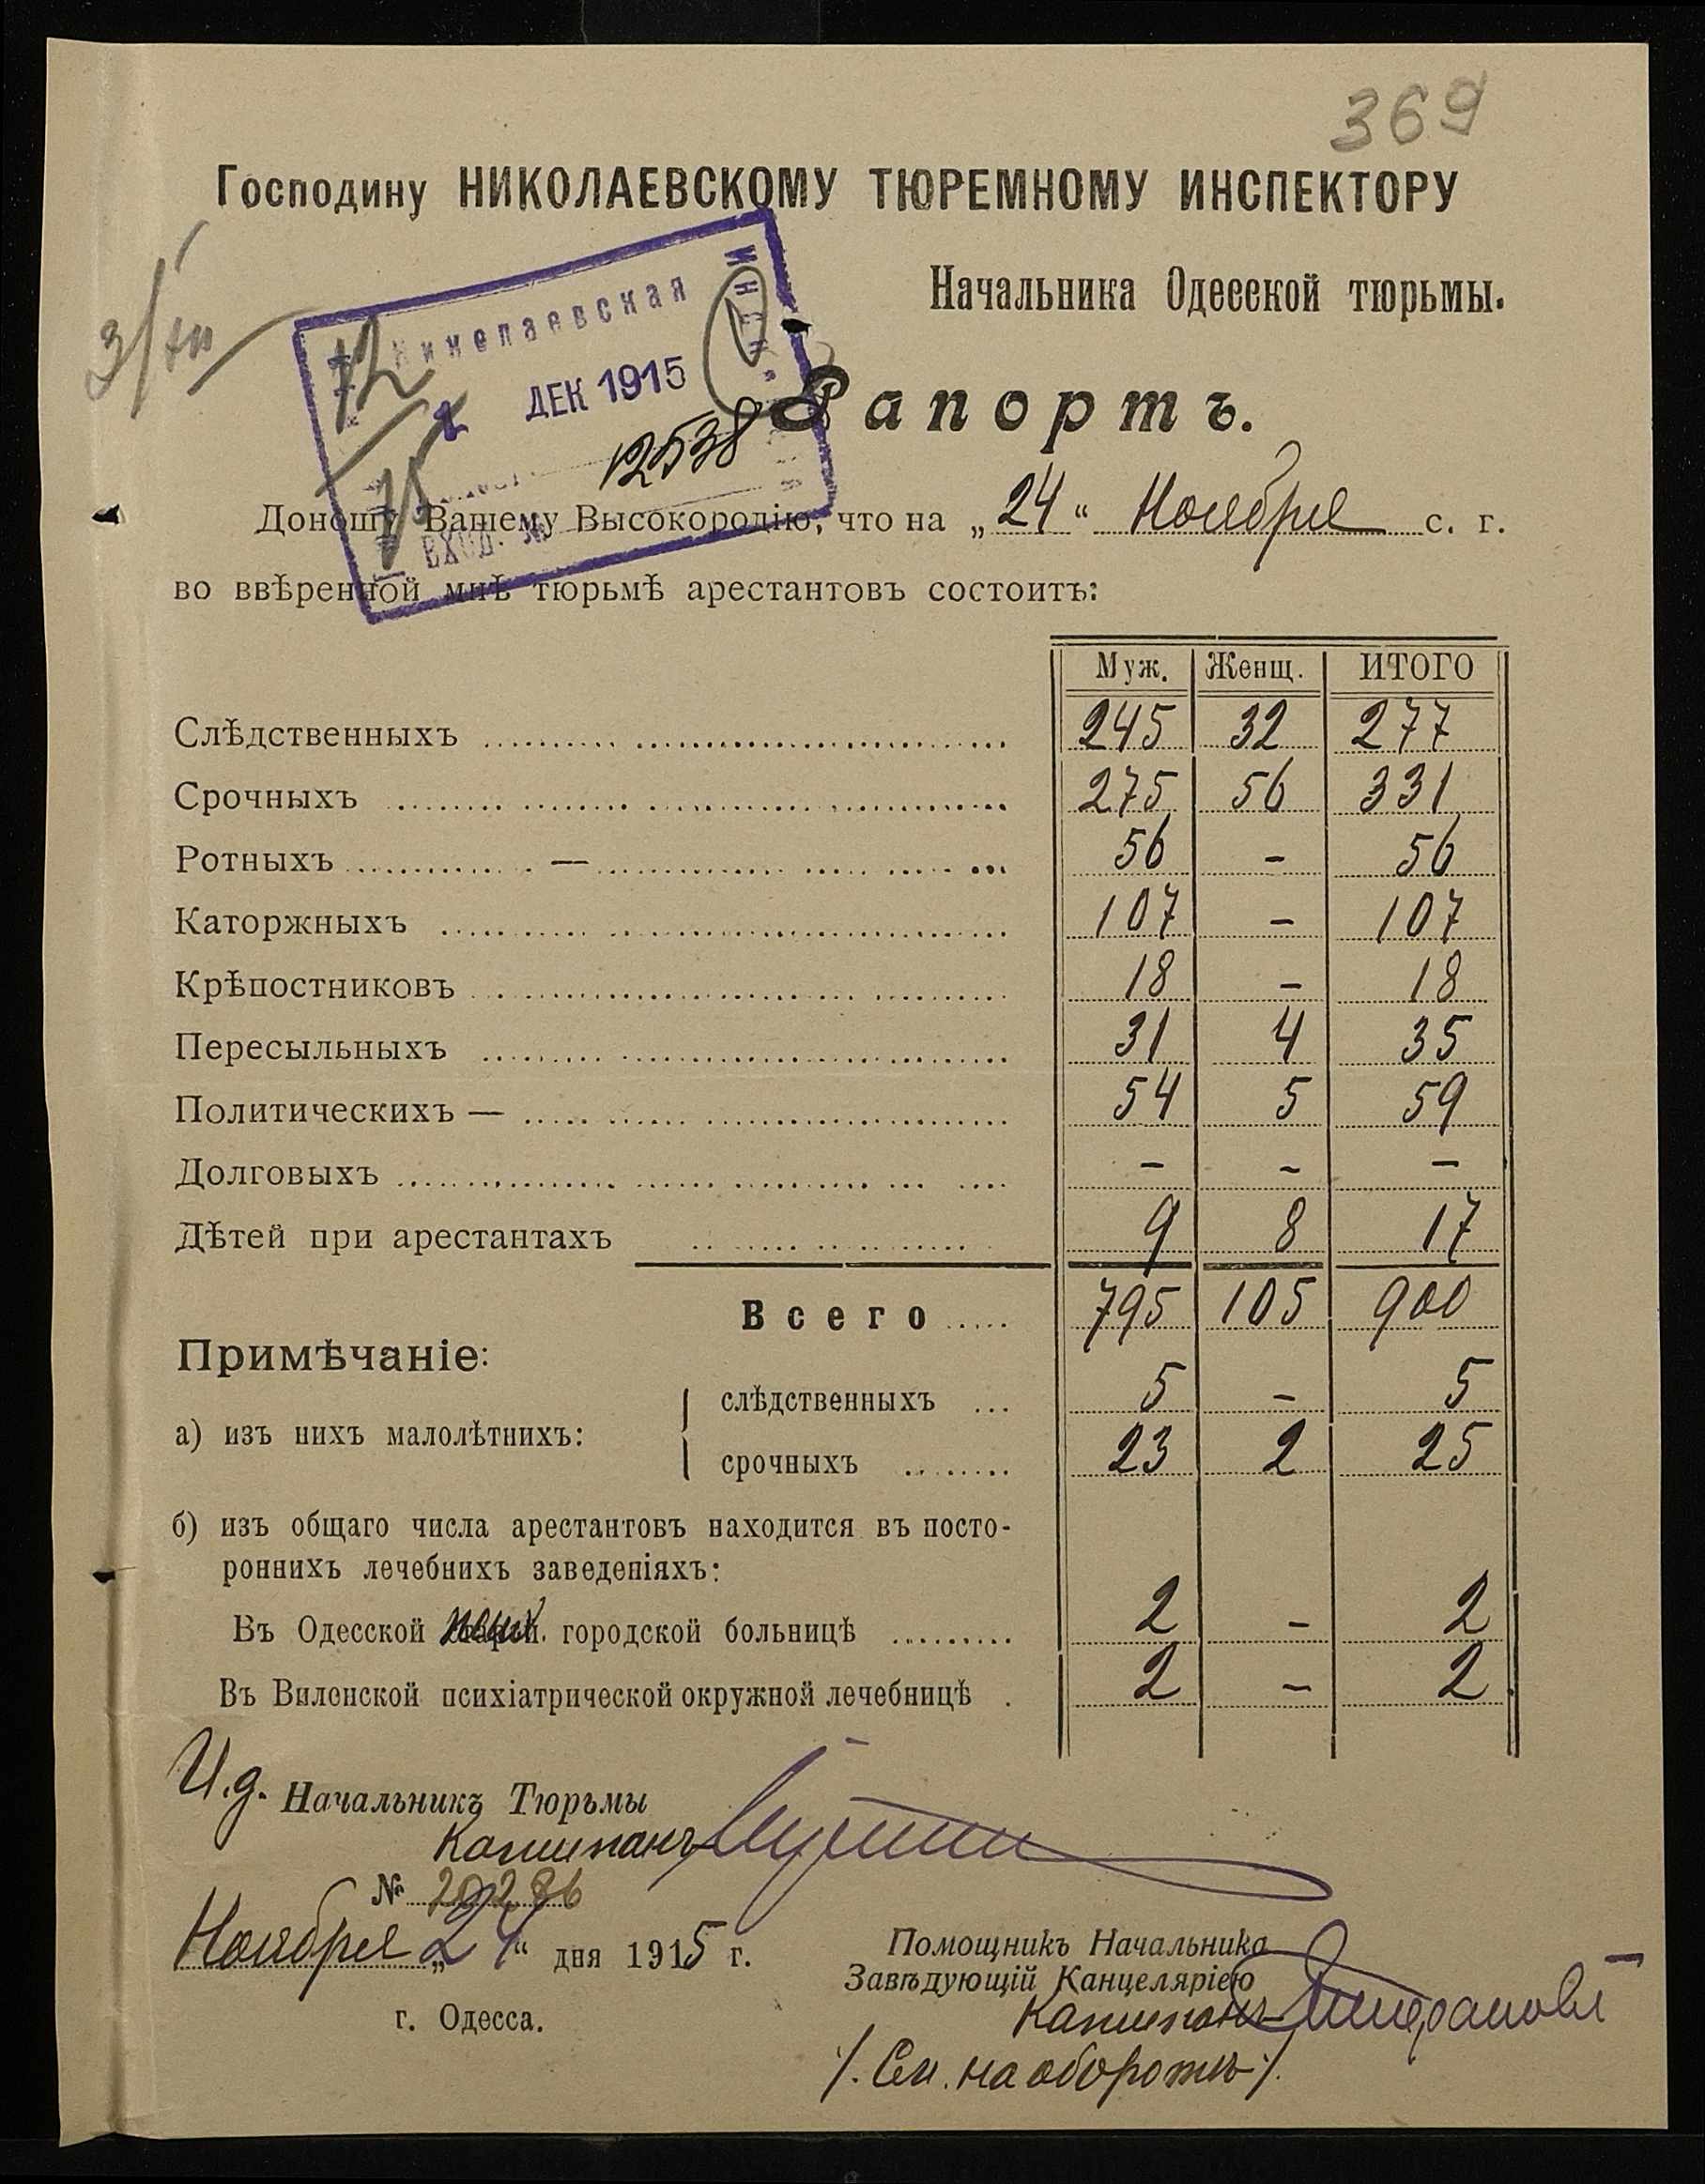 369
Господину НИКОЛАЕВСКОМУ ТЮРЕМНОМУ ИНСПЕКТОРУ
Начальника Одесской тюрьмы.
3/XII
Николаевская
2 ДЕК 1915
12538
Вход. №
Рапортъ.
Доношу Вашему Высокородію, что на „24“ Ноября с. г.
во ввѣренной мнѣ тюрьмѣ арестантовъ состоитъ:
Муж. Женщ. ИТОГО
Слѣдственныхъ 245 32 277
Срочныхъ 275 56 331
Ротныхъ — 56 - 56
Каторжныхъ 107 - 107
Крѣпостниковъ 18 - 18
Пересыльныхъ 31 4 35
Политическихъ — 54 5 59
Долговыхъ - - -
Дѣтей при арестантахъ 9 8 17
Всего 795 105 900
Примѣчаніе:
а) изъ нихъ малолѣтнихъ:
слѣдственныхъ 5 - 5
срочныхъ 23 2 25
б) изъ общаго числа арестантовъ находится въ посто-
роннихъ лечебнихъ заведеніяхъ:
Въ Одесской псих. городской больницѣ 2 - 2
Въ Виленской психіатрической окружной лечебницѣ 2 - 2
И.д. Начальникъ Тюрьмы
Капитанъ
№ 20286
Ноября „24“ дня 1915 г.
г. Одесса.
Помощникъ Начальника
Завѣдующій Канцеляріею
Капитанъ
/. См. на оборотѣ /.